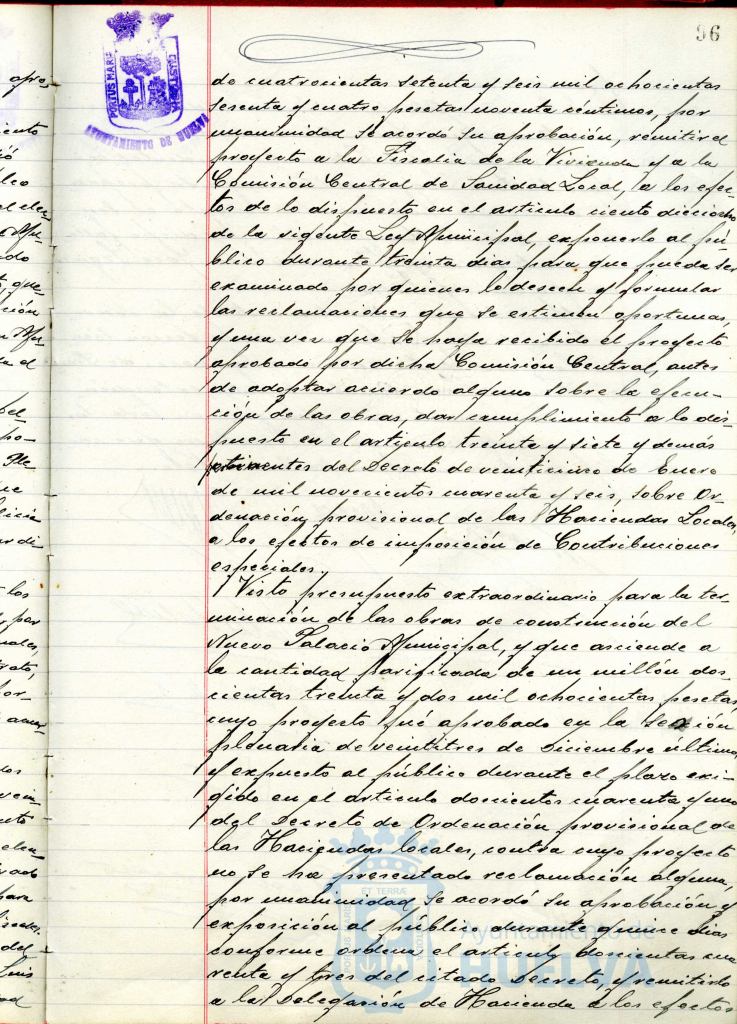 96
PORTUS MARIS
CUSTODIA
AYUNTAMIENTO DE HUELVA
de cuatrocientas setenta y seis mil ochocientas
sesenta y cuatro pesetas noventa centimos, por
unanimidad se acordó su aprobación, remitir el
proyecto a la Fiscalia de la Vivienda y a la
Comisión Central de Sanidad Local, a los efec-
tos de lo dispuesto en el articulo ciento dieciocho
de la vigente Ley Municipal, exponerlo al pú-
blico durante treinta dias para que pueda ser
examinado por quienes lo deseen y formular
las reclamaciones que se estimen oportunas,
y una vez que se haya recibido el proyecto
aprobado por dicha Comisión Central, antes
de adoptar acuerdo alguno sobre la ejecu-
ción de las obras, dar cumplimiento a lo dis-
puesto en el articulo treinta y siete y demás
pertinentes del Decreto de veinticinco de Enero
de mil novecientos cuarenta y seis, sobre Or-
denación provisional de las Haciendas Locales,
a los efectos de imposición de Contribuciones
especiales.
Visto presupuesto extraordinario para la ter-
minación de las obras de construcción del
Nuevo Palacio Municipal, y que asciende a
la cantidad parificada de un millón dos-
cientas treinta y dos mil ochocientas pesetas,
cuyo proyecto fué aprobado en la sesión
plenaria de veintitres de Diciembre último,
y expuesto al público durante el plazo exi-
gido en el articulo doscientos cuarenta y uno
del Decreto de Ordenación provisional de
las Haciendas locales, contra cuyo proyecto
no se ha presentado reclamación alguna,
por unanimidad se acordó su aprobación y
exposición al público durante quince dias
conforme ordena el articulo doscientos cua
renta y tres del citado Decreto, y remitirlo
a la Delegación de Hacienda a los efectos
Ayuntamiento de
HUELVA